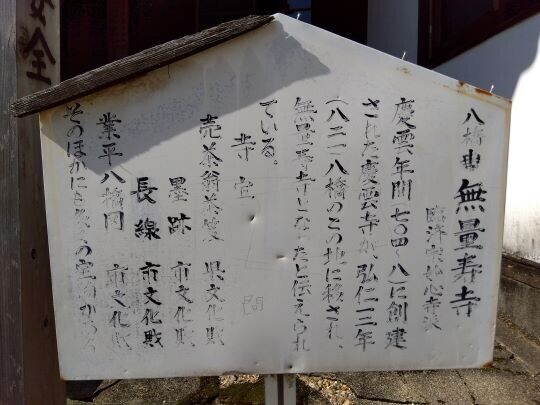 八橋山 無量寿寺
臨済宗妙心寺派
慶雲年間(七〇四〜八)に創建
された慶雲寺が、弘仁一三年
(八二二)八橋のこの地に移され、
無量寿寺となったと伝えられ
ている。
寺宝
売茶翁茶笈 県文化財
墨跡 市文化財
長線 市文化財
業平八橋図 市文化財
そのほかにも多くの宝物がある
安全